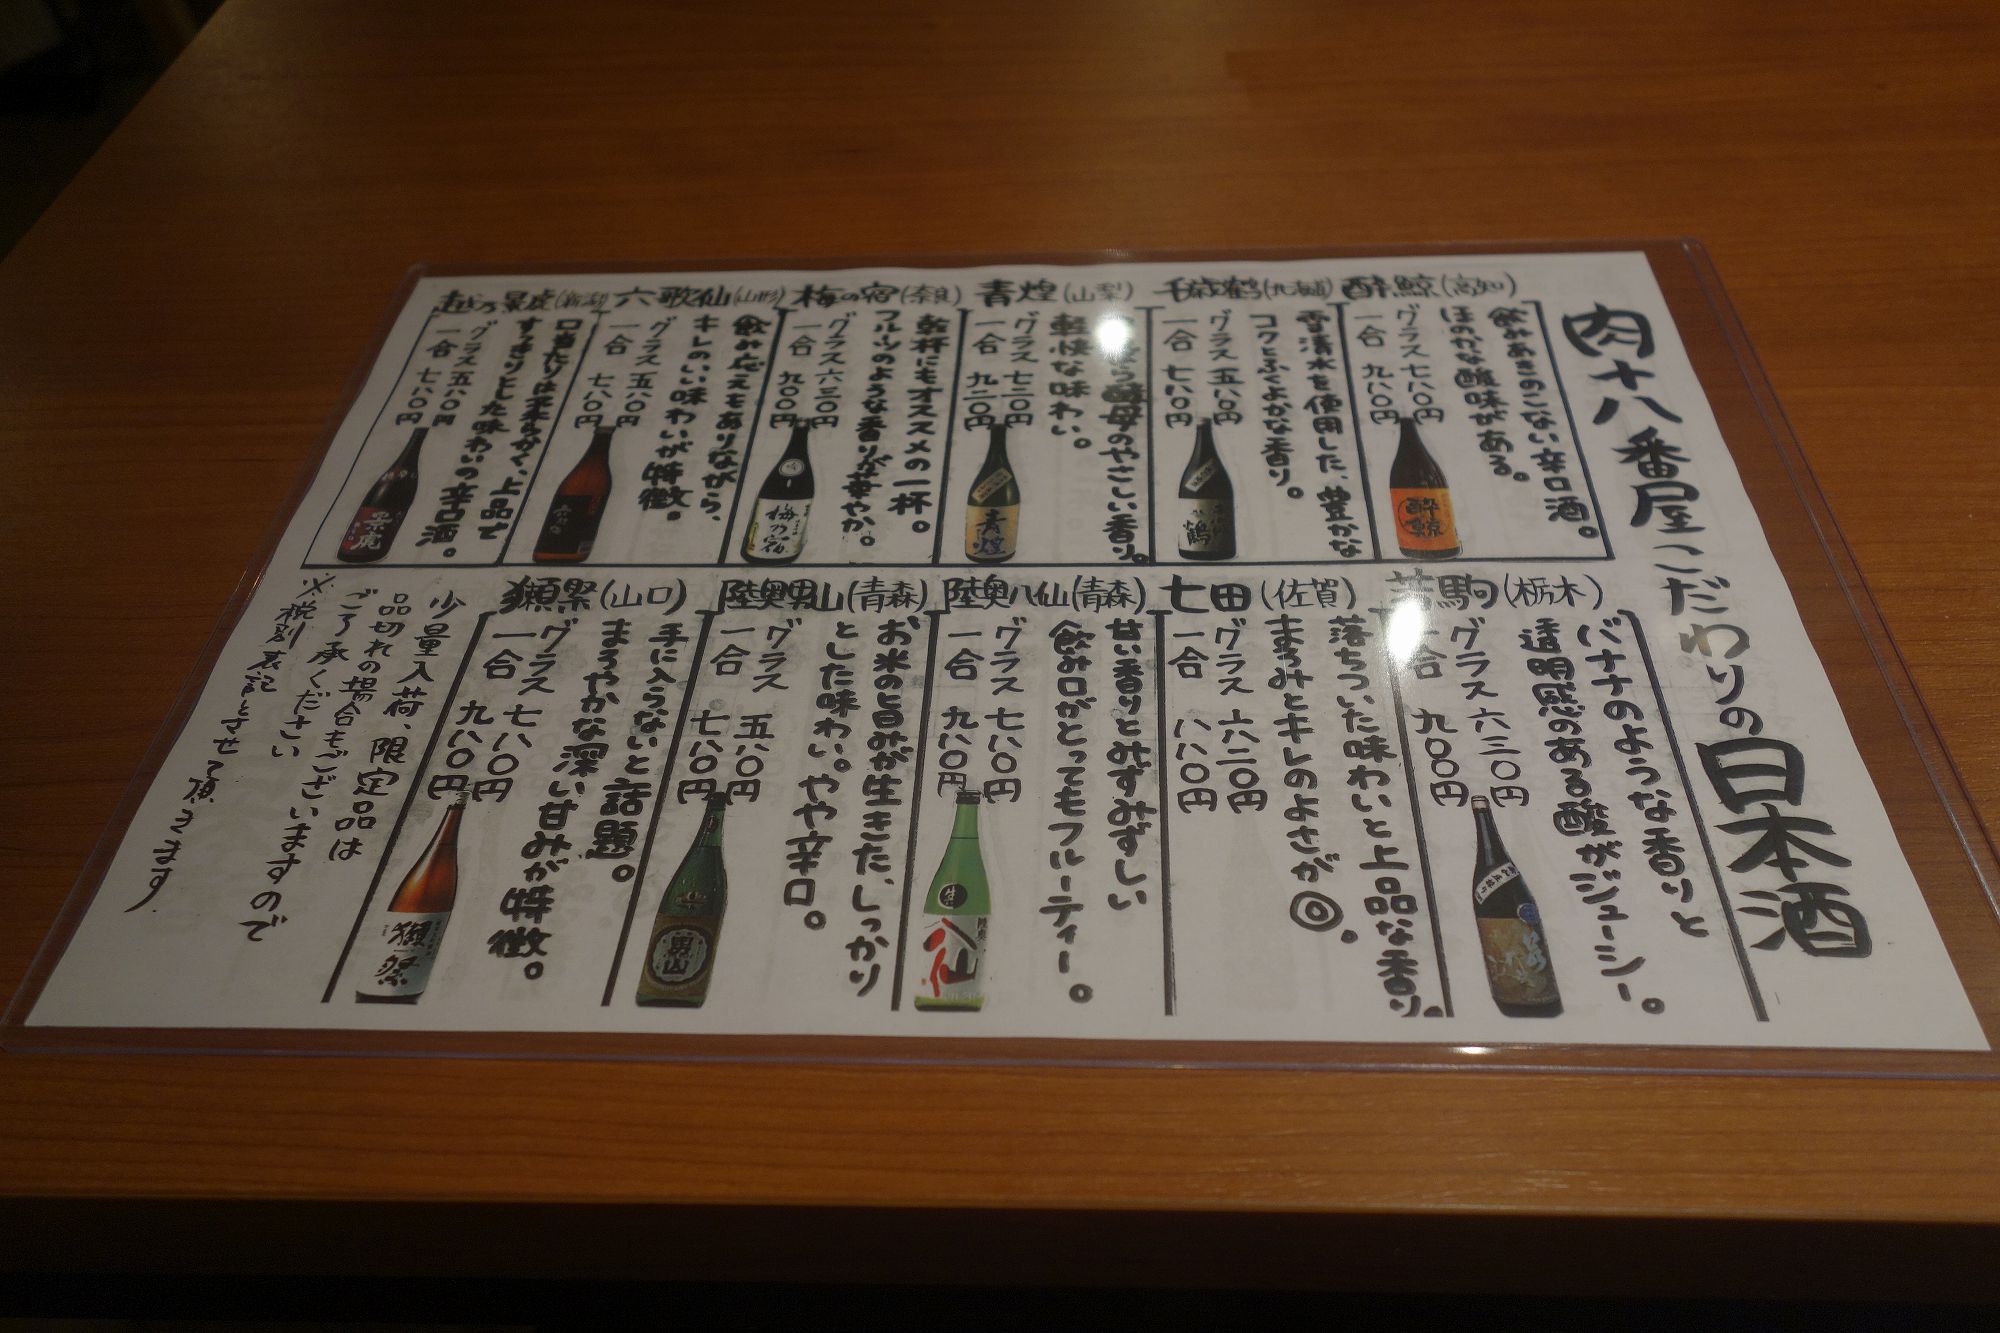 肉十八番屋こだわりの日本酒
酔鯨(高知)
飲みあきのこない辛口酒。
ほのかな酸味がある。
グラス 七八〇円
一合 九八〇円
酔鯨
千歳鶴(北海道)
雪清水を使用した、豊かな
コクとふくよかな香り。
グラス 五八〇円
一合 七八〇円
鶴
青煌(山梨)
酵母のやさしい香り。
軽快な味わい。
グラス 七二〇円
一合 九二〇円
青煌
梅の宿(奈良)
乾杯にもオススメの一杯。
フルーツのような香りが華やか。
グラス 六三〇円
一合 九〇〇円
梅乃宿
六歌仙(山形)
飲み応えもありながら、
キレのいい味わいが特徴。
グラス 五八〇円
一合 七八〇円
越乃景虎(新潟)
口当たりは柔らかく、上品で
すっきりとした味わいの辛口酒。
グラス 五八〇円
一合 七八〇円
景虎
駒(栃木)
バナナのような香りと
透明感のある酸がジューシー。
グラス 六三〇円
一合 九〇〇円
七田(佐賀)
落ちついた味わいと上品な香り。
まろみとキレのよさが◎。
グラス 六二〇円
一合 八八〇円
陸奥八仙(青森)
甘い香りとみずみずしい
飲み口がとってもフルーティー。
グラス 七八〇円
一合 九八〇円
八仙
陸奥男山(青森)
お米の旨みが生きた、しっかり
とした味わい。やや辛口。
グラス 五八〇円
一合 七八〇円
男山
獺祭(山口)
手に入らないと話題。
まろやかな深い甘みが特徴。
グラス 七八〇円
一合 九八〇円
獺祭
少量入荷、限定品は
品切れの場合もございますので
ご了承ください
※税別表記とさせて頂きます